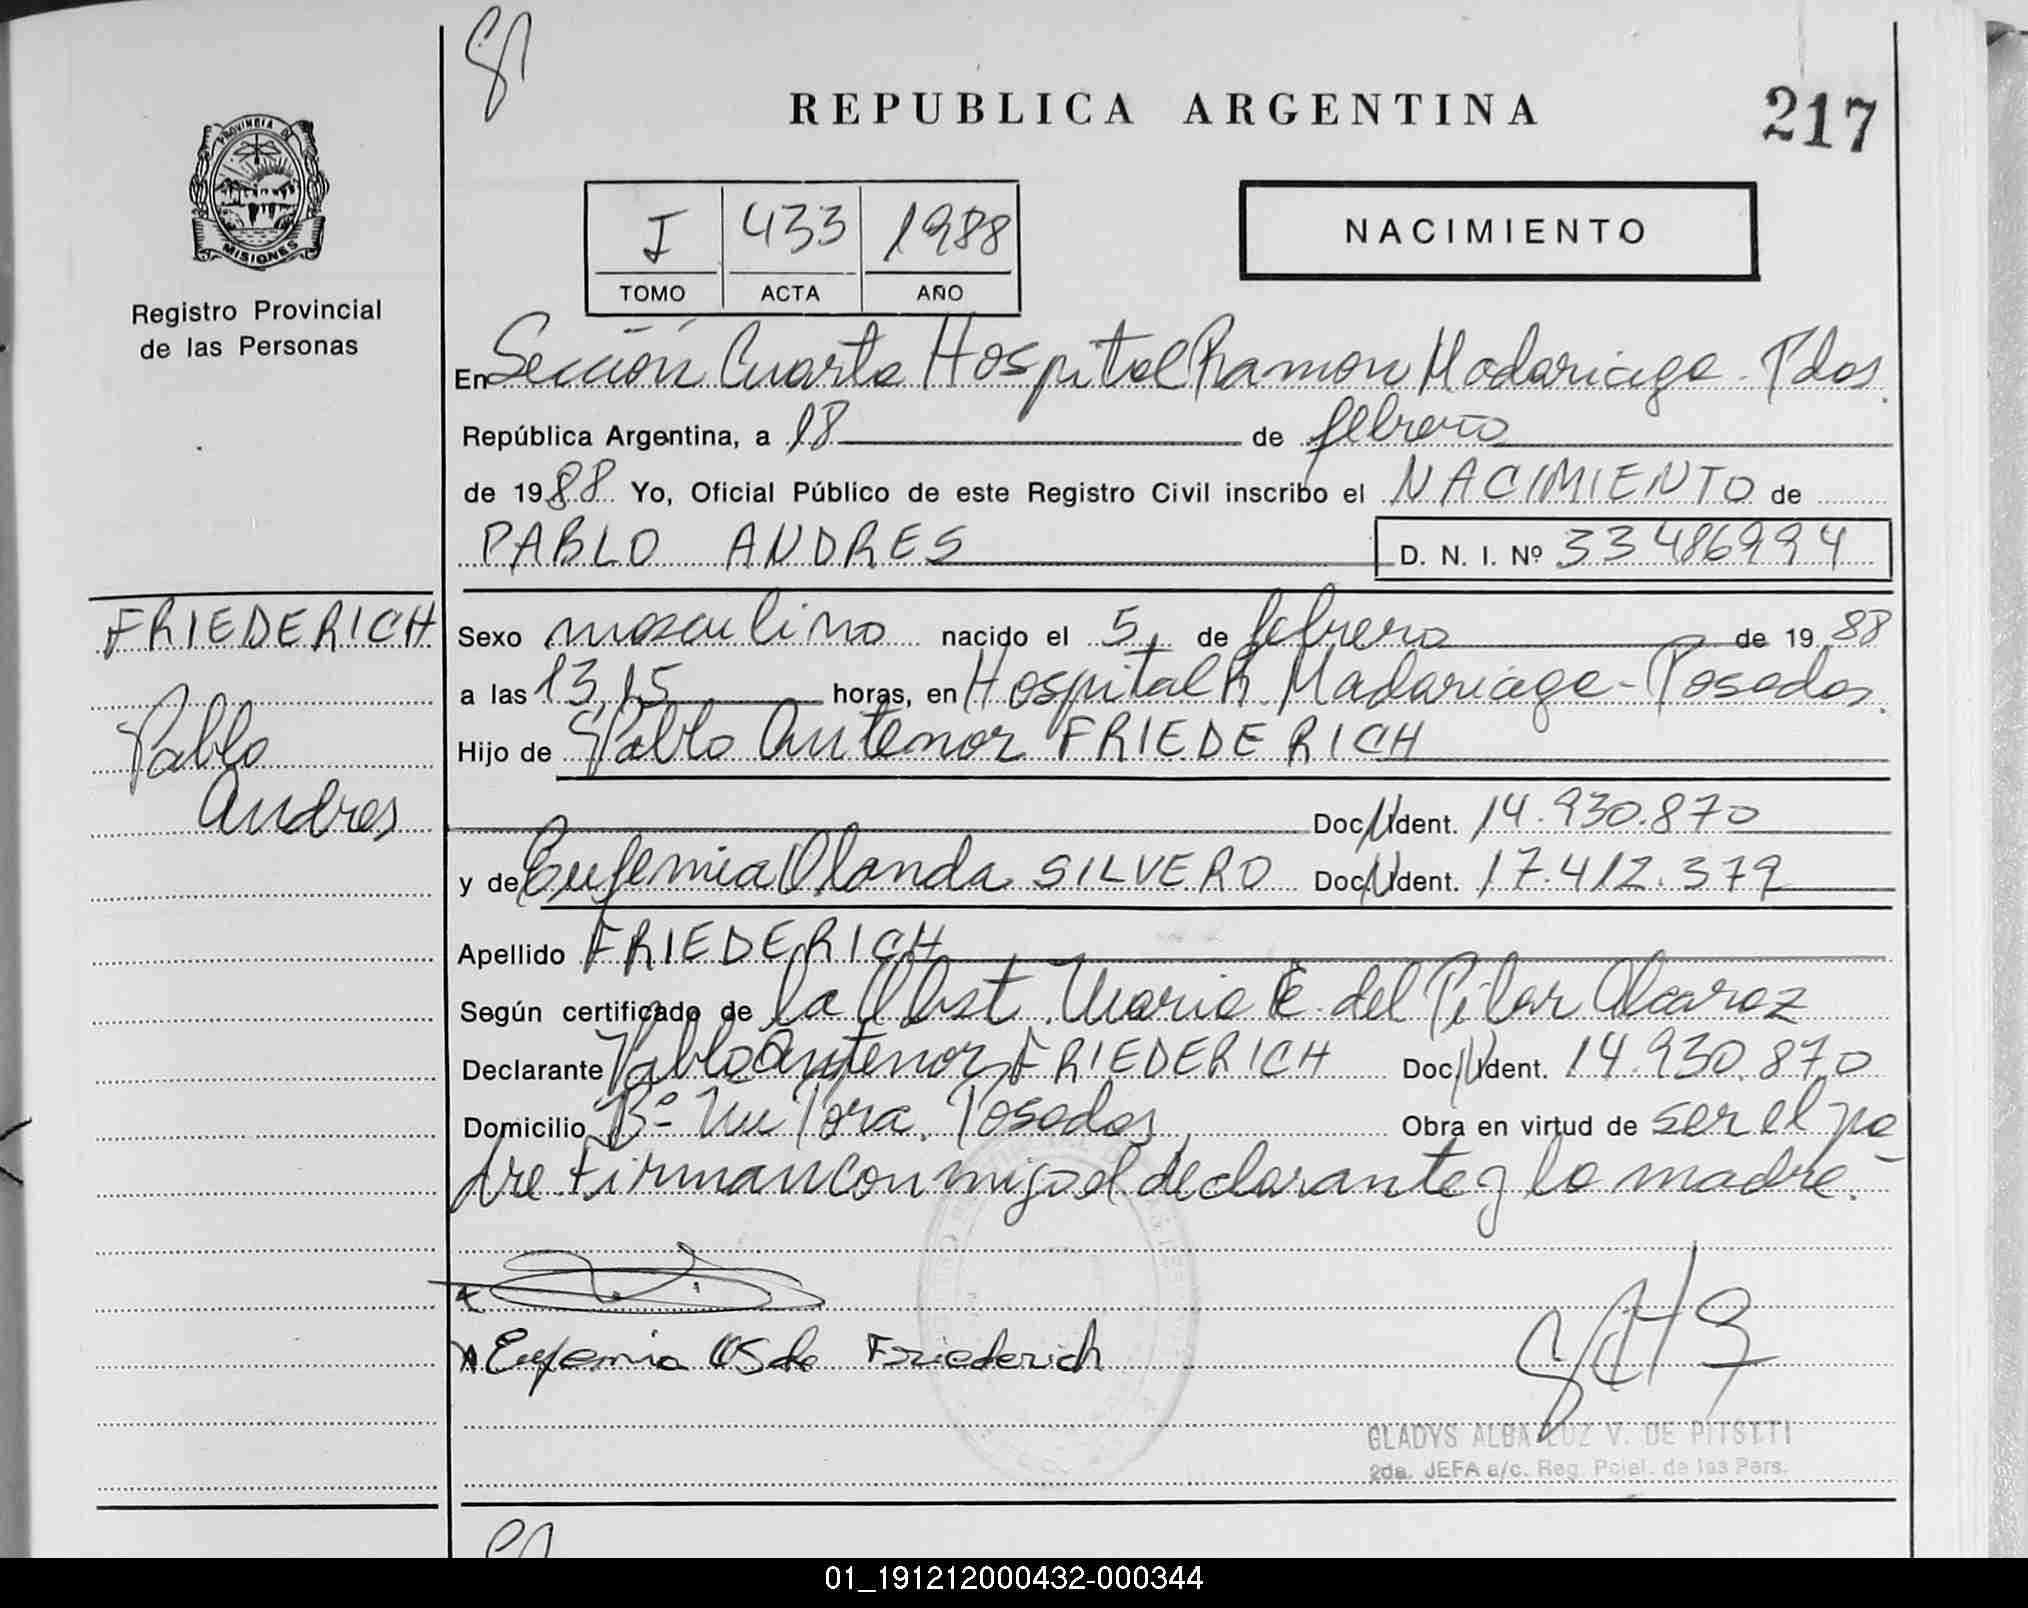 REPUBLICA ARGENTINA
217
PROVINCIA DE
MISIONES
Registro Provincial
de las Personas
I 433 1988
TOMO ACTA AÑO
NACIMIENTO
En Sección Cuarta Hospital Ramon Madariaga - Pdas.
República Argentina, a 18 de febrero
de 1988 Yo, Oficial Público de este Registro Civil inscribo el NACIMIENTO de
PABLO ANDRES D. N. I. Nº 33486994
FRIEDERICH
Pablo
Andres
Sexo masculino nacido el 5, de febrero de 1988
a las 13,15 horas, en Hospital R. Madariaga - Posadas.
Hijo de Pablo Antenor FRIEDERICH
Doc. N Ident. 14.930.870
y de Eufemia Olanda SILVERO Doc. N Ident. 17.412.379
Apellido FRIEDERICH
Según certificado de la Obst. Maria E. del Pilar Alcaraz
Declarante Pablo Antenor FRIEDERICH Doc. N Ident. 14.930.870
Domicilio Bº Posadas, Obra en virtud de ser el pa-
dre. Firman conmigo el declarante y la madre.
Eufemia OS de Friederich
GLADYS ALBA LUZ V. DE
2da. JEFA a/c. Reg. Pcial. de las Pers.
01_191212000432-000344